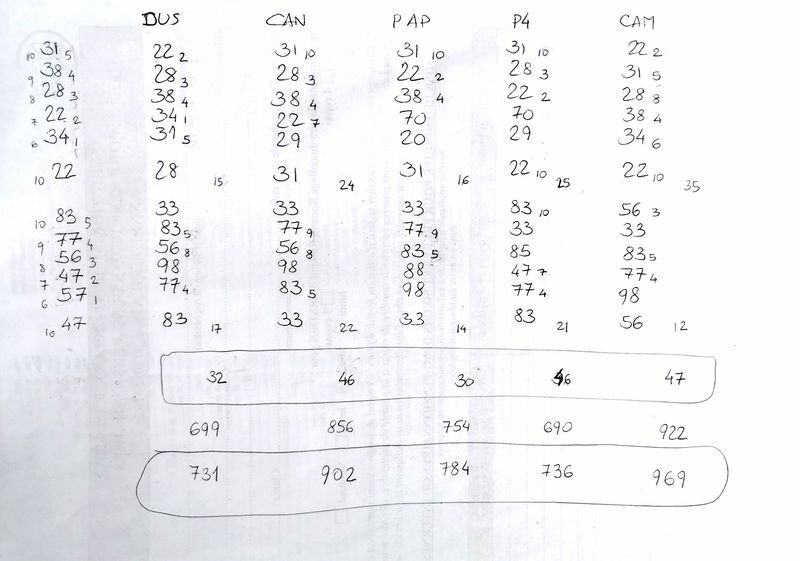 DUS CAN PAP P4 CAM
10 31 5 22 2 31 10 31 10 31 10 22 2
9 38 4 28 3 28 3 22 2 28 3 31 5
8 28 3 38 4 38 4 38 4 22 2 28 8
7 22 2 34 1 22 7 70 70 38 4
6 34 1 31 5 29 20 29 34 6
10 22 28 15 31 24 31 16 22 10 25 22 10 35
10 83 5 33 33 33 83 10 56 3
9 77 4 83 5 77 9 77 9 33 33
8 56 3 56 8 56 8 83 5 85 83 5
7 47 2 98 98 88 47 7 77 4
6 57 1 77 4 83 5 98 77 4 98
10 47 83 17 33 22 33 14 83 21 56 12
32 46 30 46 47
699 856 754 690 922
731 902 784 736 969